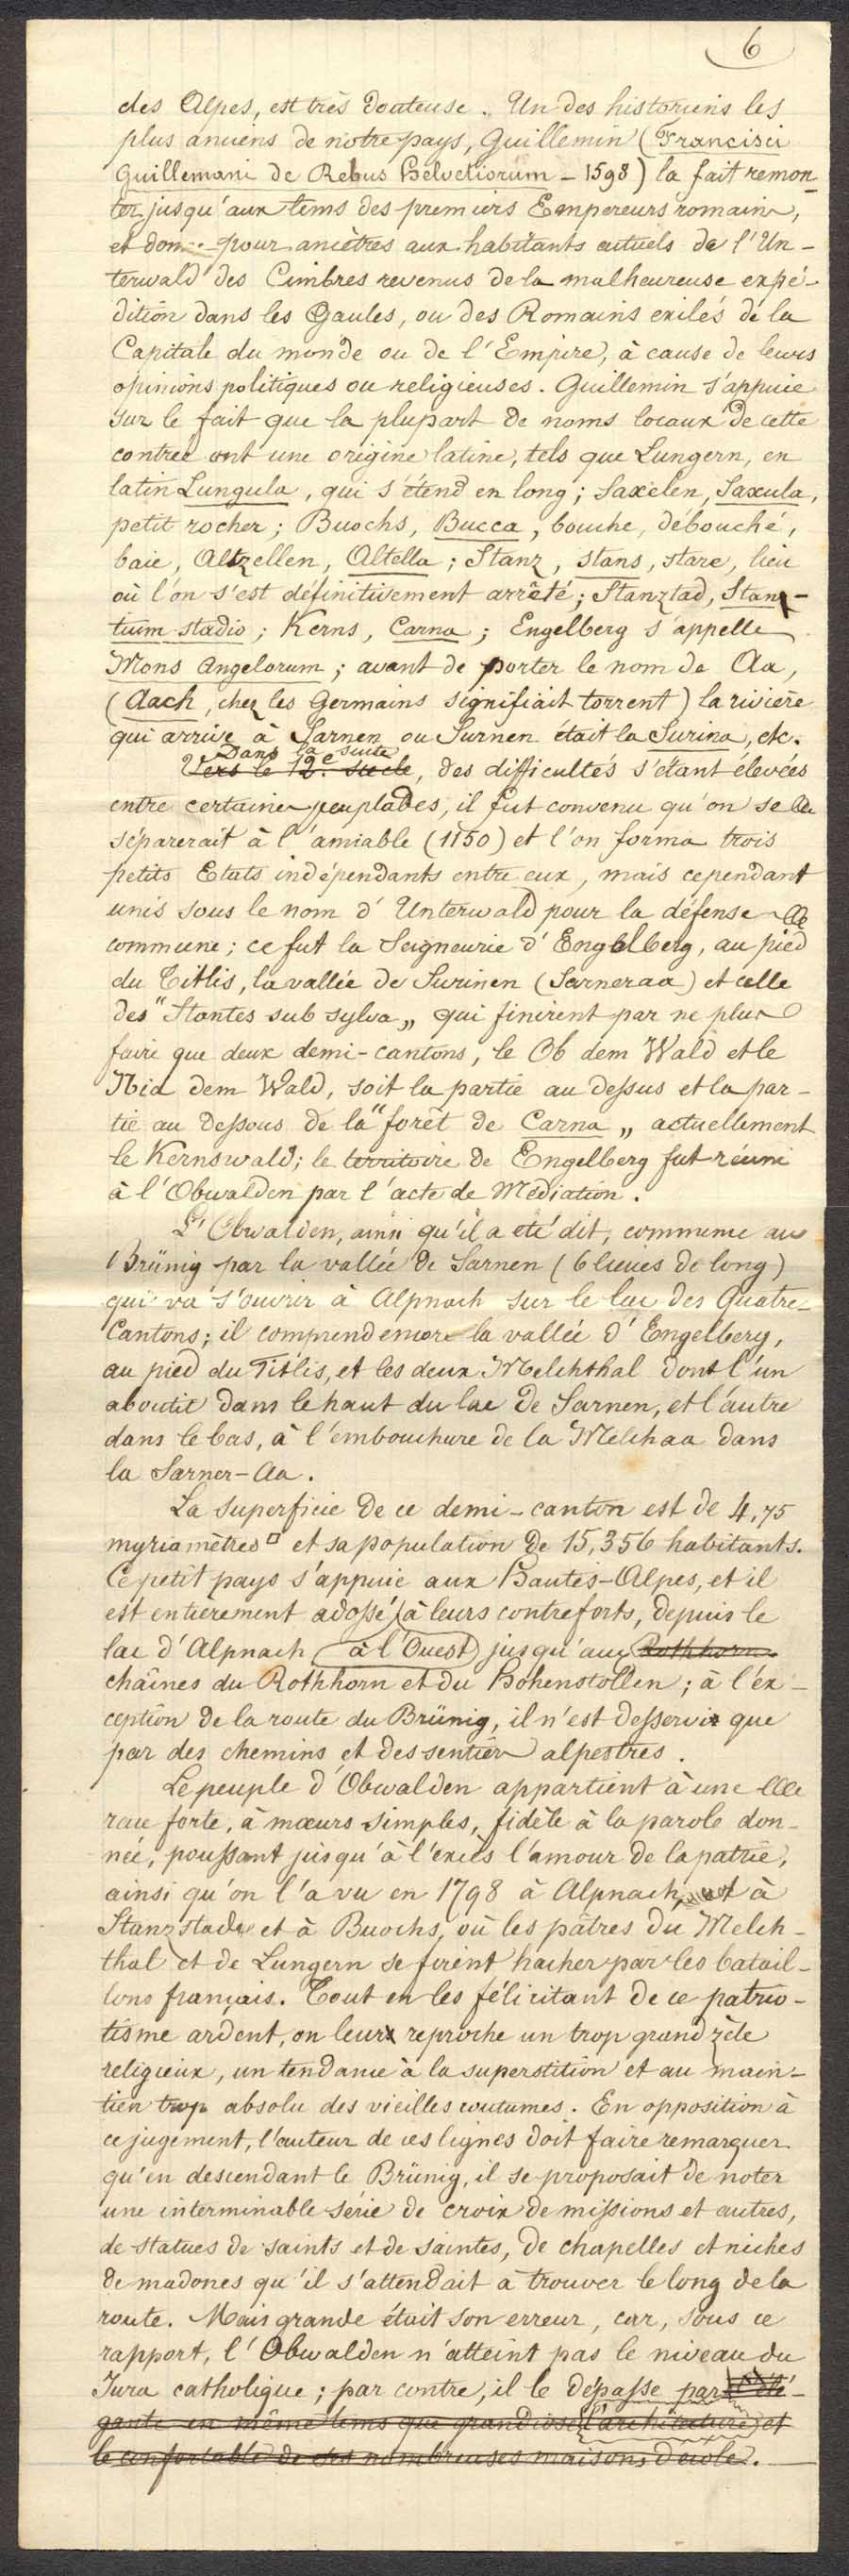 6
des Alpes, est très douteuse. Un des historiens les
plus anciens de notre pays, Guillemin (Francisci
Guillemani de Rebus Helvetiorum - 1598) la fait remon-
ter jusqu'aux tems des premiers Empereurs romains,
et donne pour ancêtres aux habitants actuels de l'Un-
terwald des Cimbres revenus de la malheureuse expé-
dition dans les Gaules, ou des Romains exilés de la
Capitale du monde ou de l'Empire, à cause de leurs
opinions politiques ou religieuses. Guillemin s'appuie
sur le fait que la plupart de noms locaux de cette
contrée ont une origine latine, tels que Lungern, en
latin Lungula, qui s'étend en long; Saxelen, Saxula,
petit rocher; Buochs, Bucca, bouche, débouché,
baie, Altzellen, Altella; Stanz, stans, stare, lieu
où l'on s'est définitivement arrêté; Stanztad, Stan-
tium stadio; Kerns, Carna; Engelberg s'appelle
Mons Angelorum; avant de porter le nom de Aa,
(Aach, chez les Germains signifiait torrent) la rivière
qui arrive à Sarnen ou Surnen était la Surina, etc.
Dans la suite
Vers le 12e siècle, des difficultés s'étant élevées
entre certaines peuplades, il fut convenu qu'on se
séparerait à l'amiable (1150) et l'on forma trois
petits Etats indépendants entre eux, mais cependant
unis sous le nom d'Unterwald pour la défense
commune; ce fut la Seigneurie d'Engelberg, au pied
du Titlis, la vallée de Surinen (Sarneraa) et celle
des "Stantes sub sylva„ qui finirent par ne plus
faire que deux demi-cantons, le Ob dem Wald et le
Nid dem Wald, soit la partie au dessus et la par-
tie au dessous de la "forêt de Carna„ actuellement
le Kernswald; le territoire de Engelberg fut réuni
à l'Obwalden par l'acte de Médiation.
L'Obwalden, ainsi qu'il a été dit, commence au
Brünig par la vallée de Sarnen (6 lieues de long)
qui va s'ouvrir à Alpnach sur le lac des Quatre-
Cantons; il comprend encore la vallée d'Engelberg,
au pied du Titlis, et les deux Melchthal dont l'un
aboutit dans le haut du lac de Sarnen, et l'autre
dans le bas, à l'embouchure de la Melchaa dans
la Sarner-Aa.
La superficie de ce demi-canton est de 4,75
myriamètres□ et sa population de 15,356 habitants.
Ce petit pays s'appuie aux Hautes-Alpes, et il
est entièrement adossé à leurs contreforts, depuis le
lac d'Alpnach à l'Ouest jusqu'aux Rothhorn
chaînes du Rothhorn et du Hohenstollen; à l'ex-
ception de la route du Brünig, il n'est desservi que
par des chemins et des sentiers alpestres.
Le peuple d'Obwalden appartient à une
race forte, à mœurs simples, fidèle à la parole don-
née, poussant jusqu'à l'excès l'amour de la patrie,
ainsi qu'on l'a vu en 1798 à Alpnach, et à
Stanzstade et à Buochs, où les pâtres du Melch-
thal et de Lungern se firent hacher par les batail-
lons français. Tout en les félicitant de ce patrio-
tisme ardent, on leur reproche un trop grand zèle
religieux, un tendance à la superstition et au main-
tien trop absolu des vieilles coutumes. En opposition à
ce jugement, l'auteur de ces lignes doit faire remarquer
qu'en descendant le Brünig, il se proposait de noter
une interminable série de croix de missions et autres,
de statues de saints et de saintes, de chapelles et niches
de madones qu'il s'attendait à trouver le long de la
route. Mais grande était son erreur, car, sous ce
rapport, l'Obwalden n'atteint pas le niveau du
Jura catholique; par contre, il le dépasse par l'élé-
gante en même tems que grandiose l'architecture et
le confortable de ses nombreuses maisons d'école.